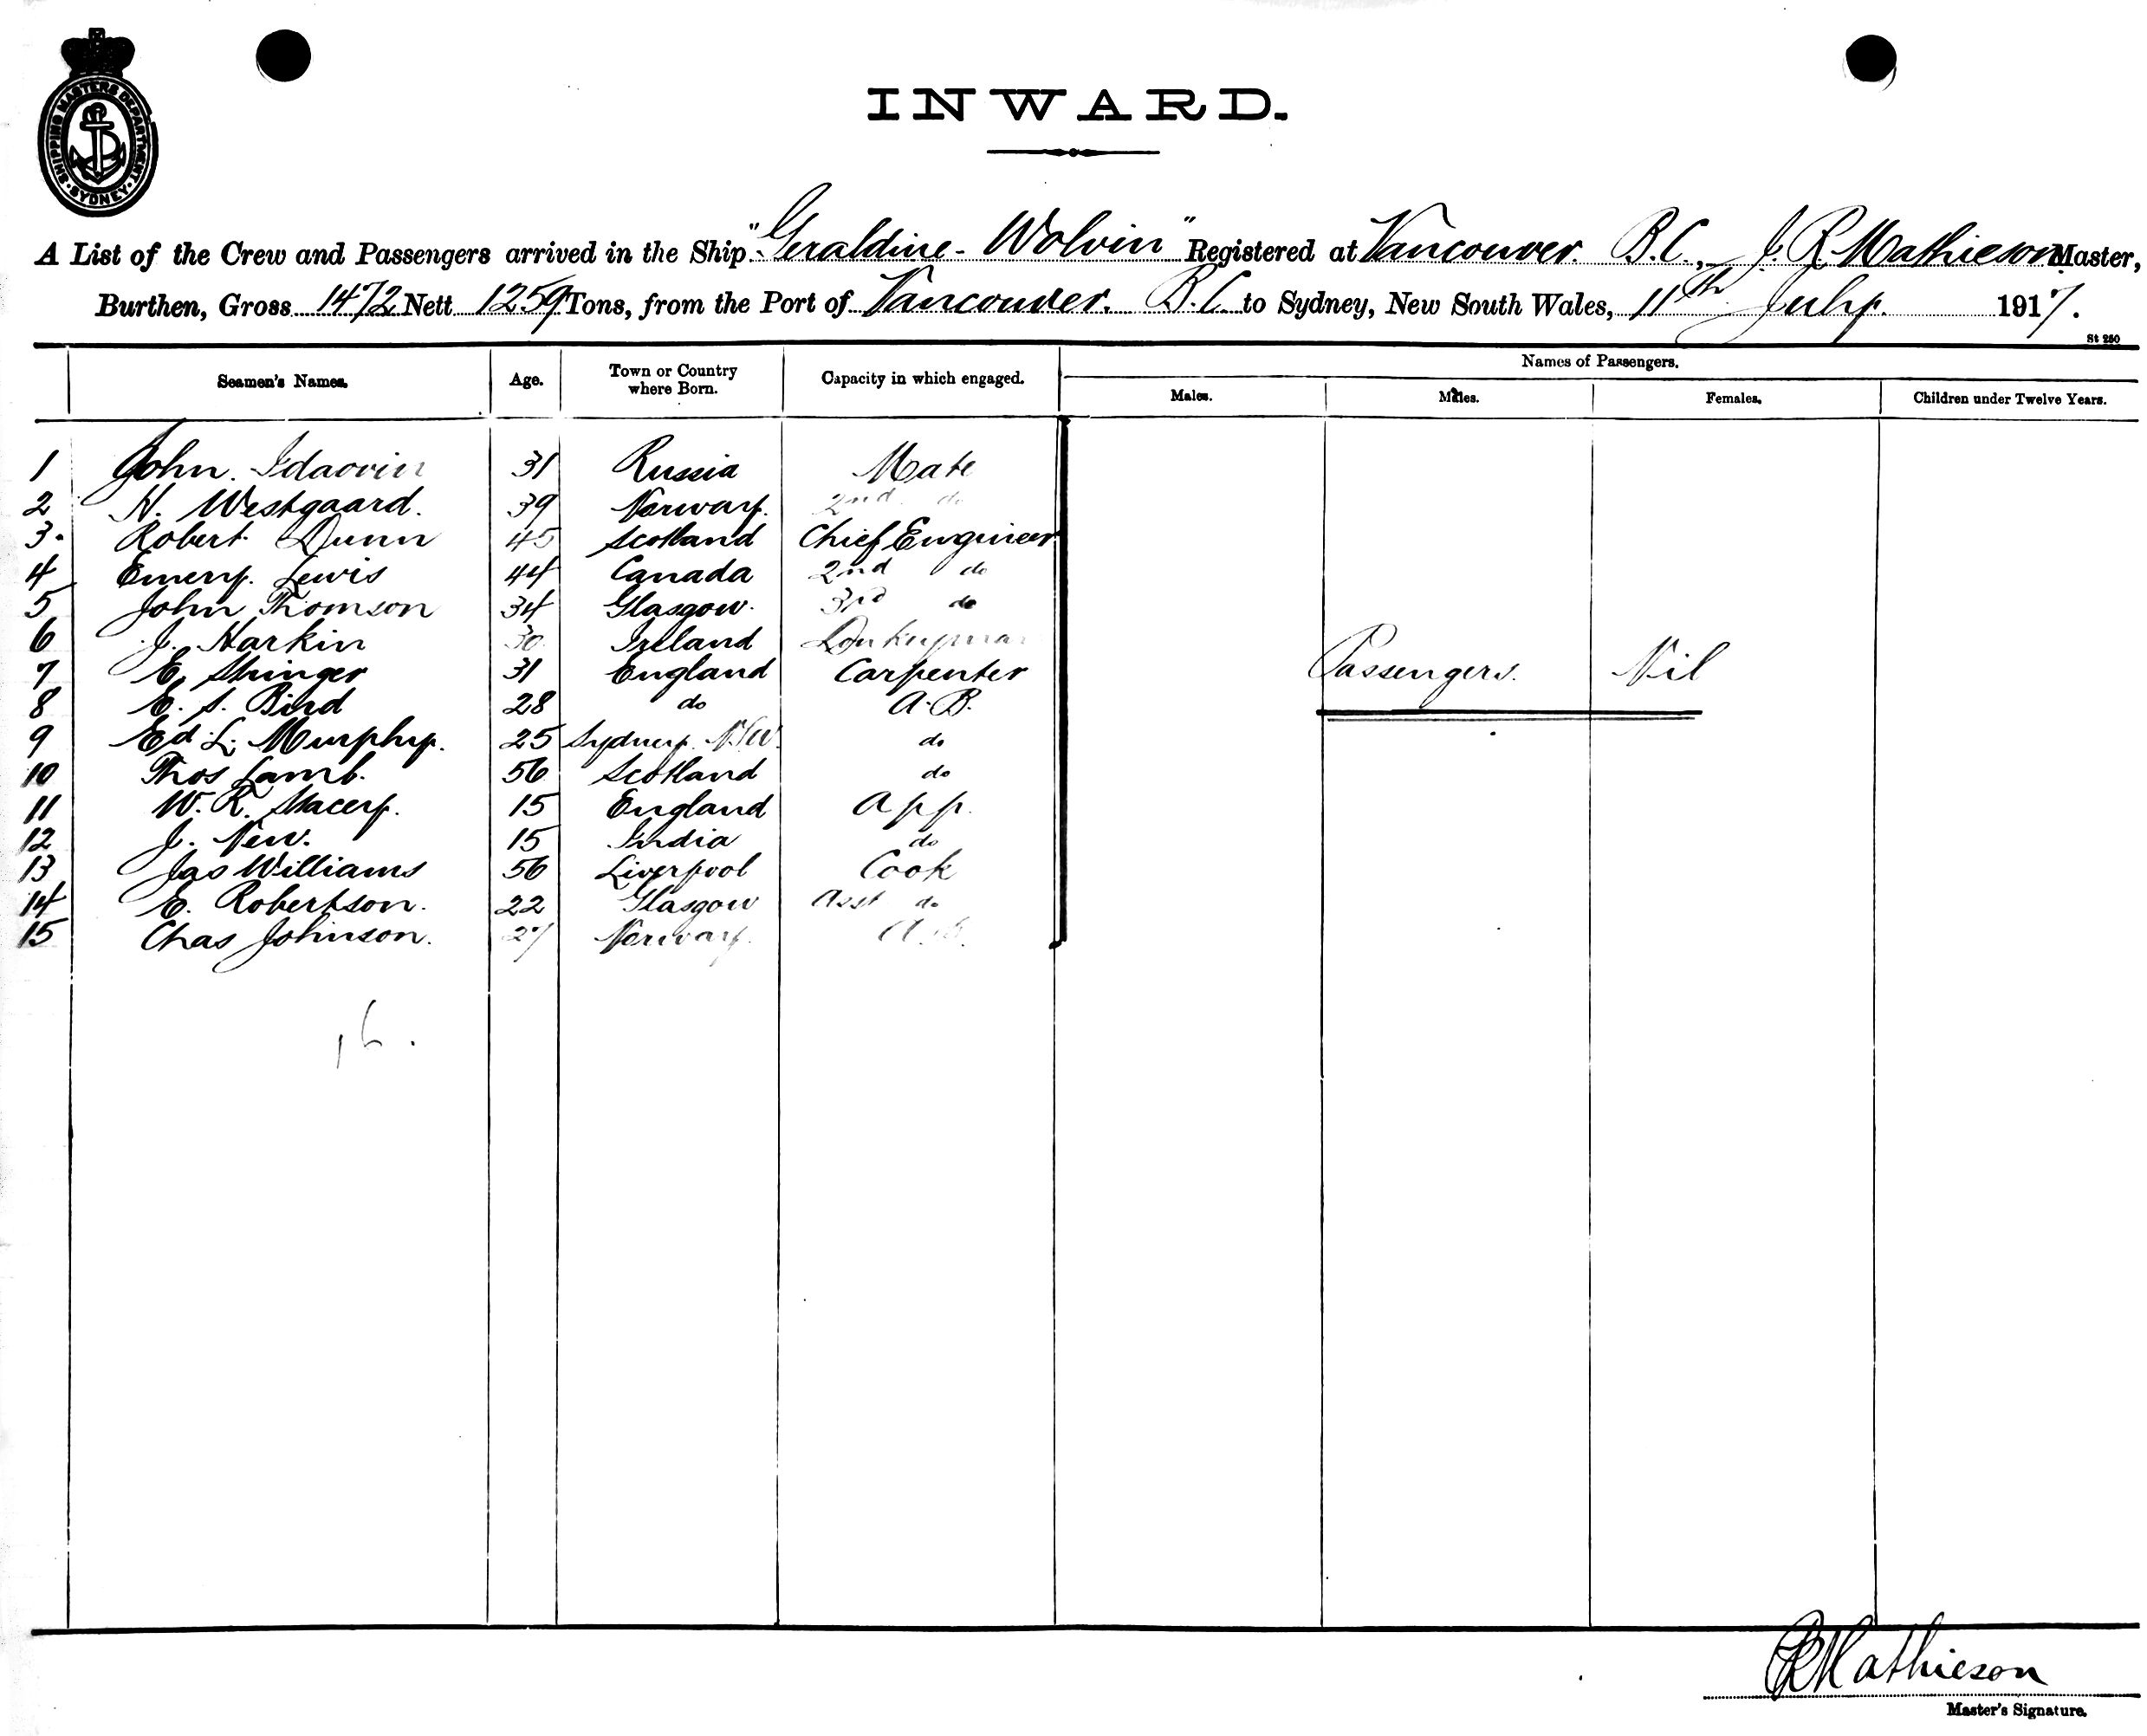 SHIPPING MASTERS DEPARTMENT · SYDNEY ·
INWARD.
A List of the Crew and Passengers arrived in the Ship "Geraldine - Wolvin" Registered at Vancouver. B.C., J. R. Mathieson Master,
Burthen, Gross 1472 Nett 1259 Tons, from the Port of Vancouver. B.C. to Sydney, New South Wales, 11th July. 1917.
St 250
Seamen's Names. Age. Town or Country where Born. Capacity in which engaged. Names of Passengers.
Males. Males. Females. Children under Twelve Years.
1 John 31 Russia Mate
2 H. Westgaard. 39 Norway. 2nd do
3. Robert Dunn 45 Scotland Chief Engineer
4 Emery. Lewis 44 Canada 2nd do
5 John Thomson 34 Glasgow. 3rd do
6 J. Harkin 30 Ireland Donkeyman
7 E. 31 England Carpenter
Passengers. Nil
8 E. S. Bird 28 do A.B.
9 Ed. L. Murphy. 25 Sydney. NSW. do
10 Thos Lamb. 56 Scotland do
11 W. R. Stacey. 15 England App.
12 J. New. 15 India do
13 Jas Williams 56 Liverpool Cook
14 E. Robertson. 22 Glasgow Asst do
15 Chas Johnson. 27 Norway. A.B.
16.
Mathieson
Master's Signature.